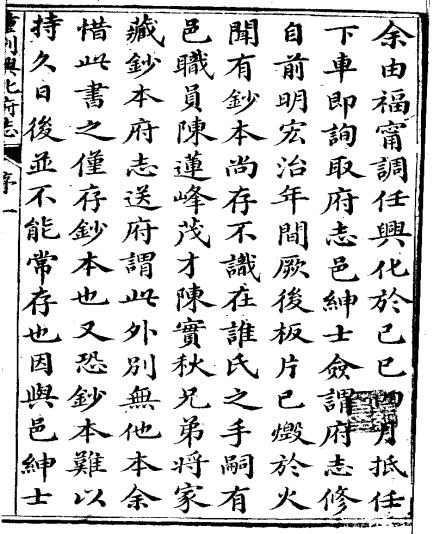 余由福甯調任興化於己巳四月抵任
下車即詢取府志邑紳士僉謂府志修
自前明宏治年間厥後板片已燬於火
聞有鈔本尚存不識在誰氏之手嗣有
邑職員陳蓮峰茂才陳實秋兄弟將家
藏鈔本府志送府謂此外別無他本余
惜此書之僅存鈔本也又恐鈔本難以
持久日後並不能常存也因與邑紳士
重刊興化府志 序 一